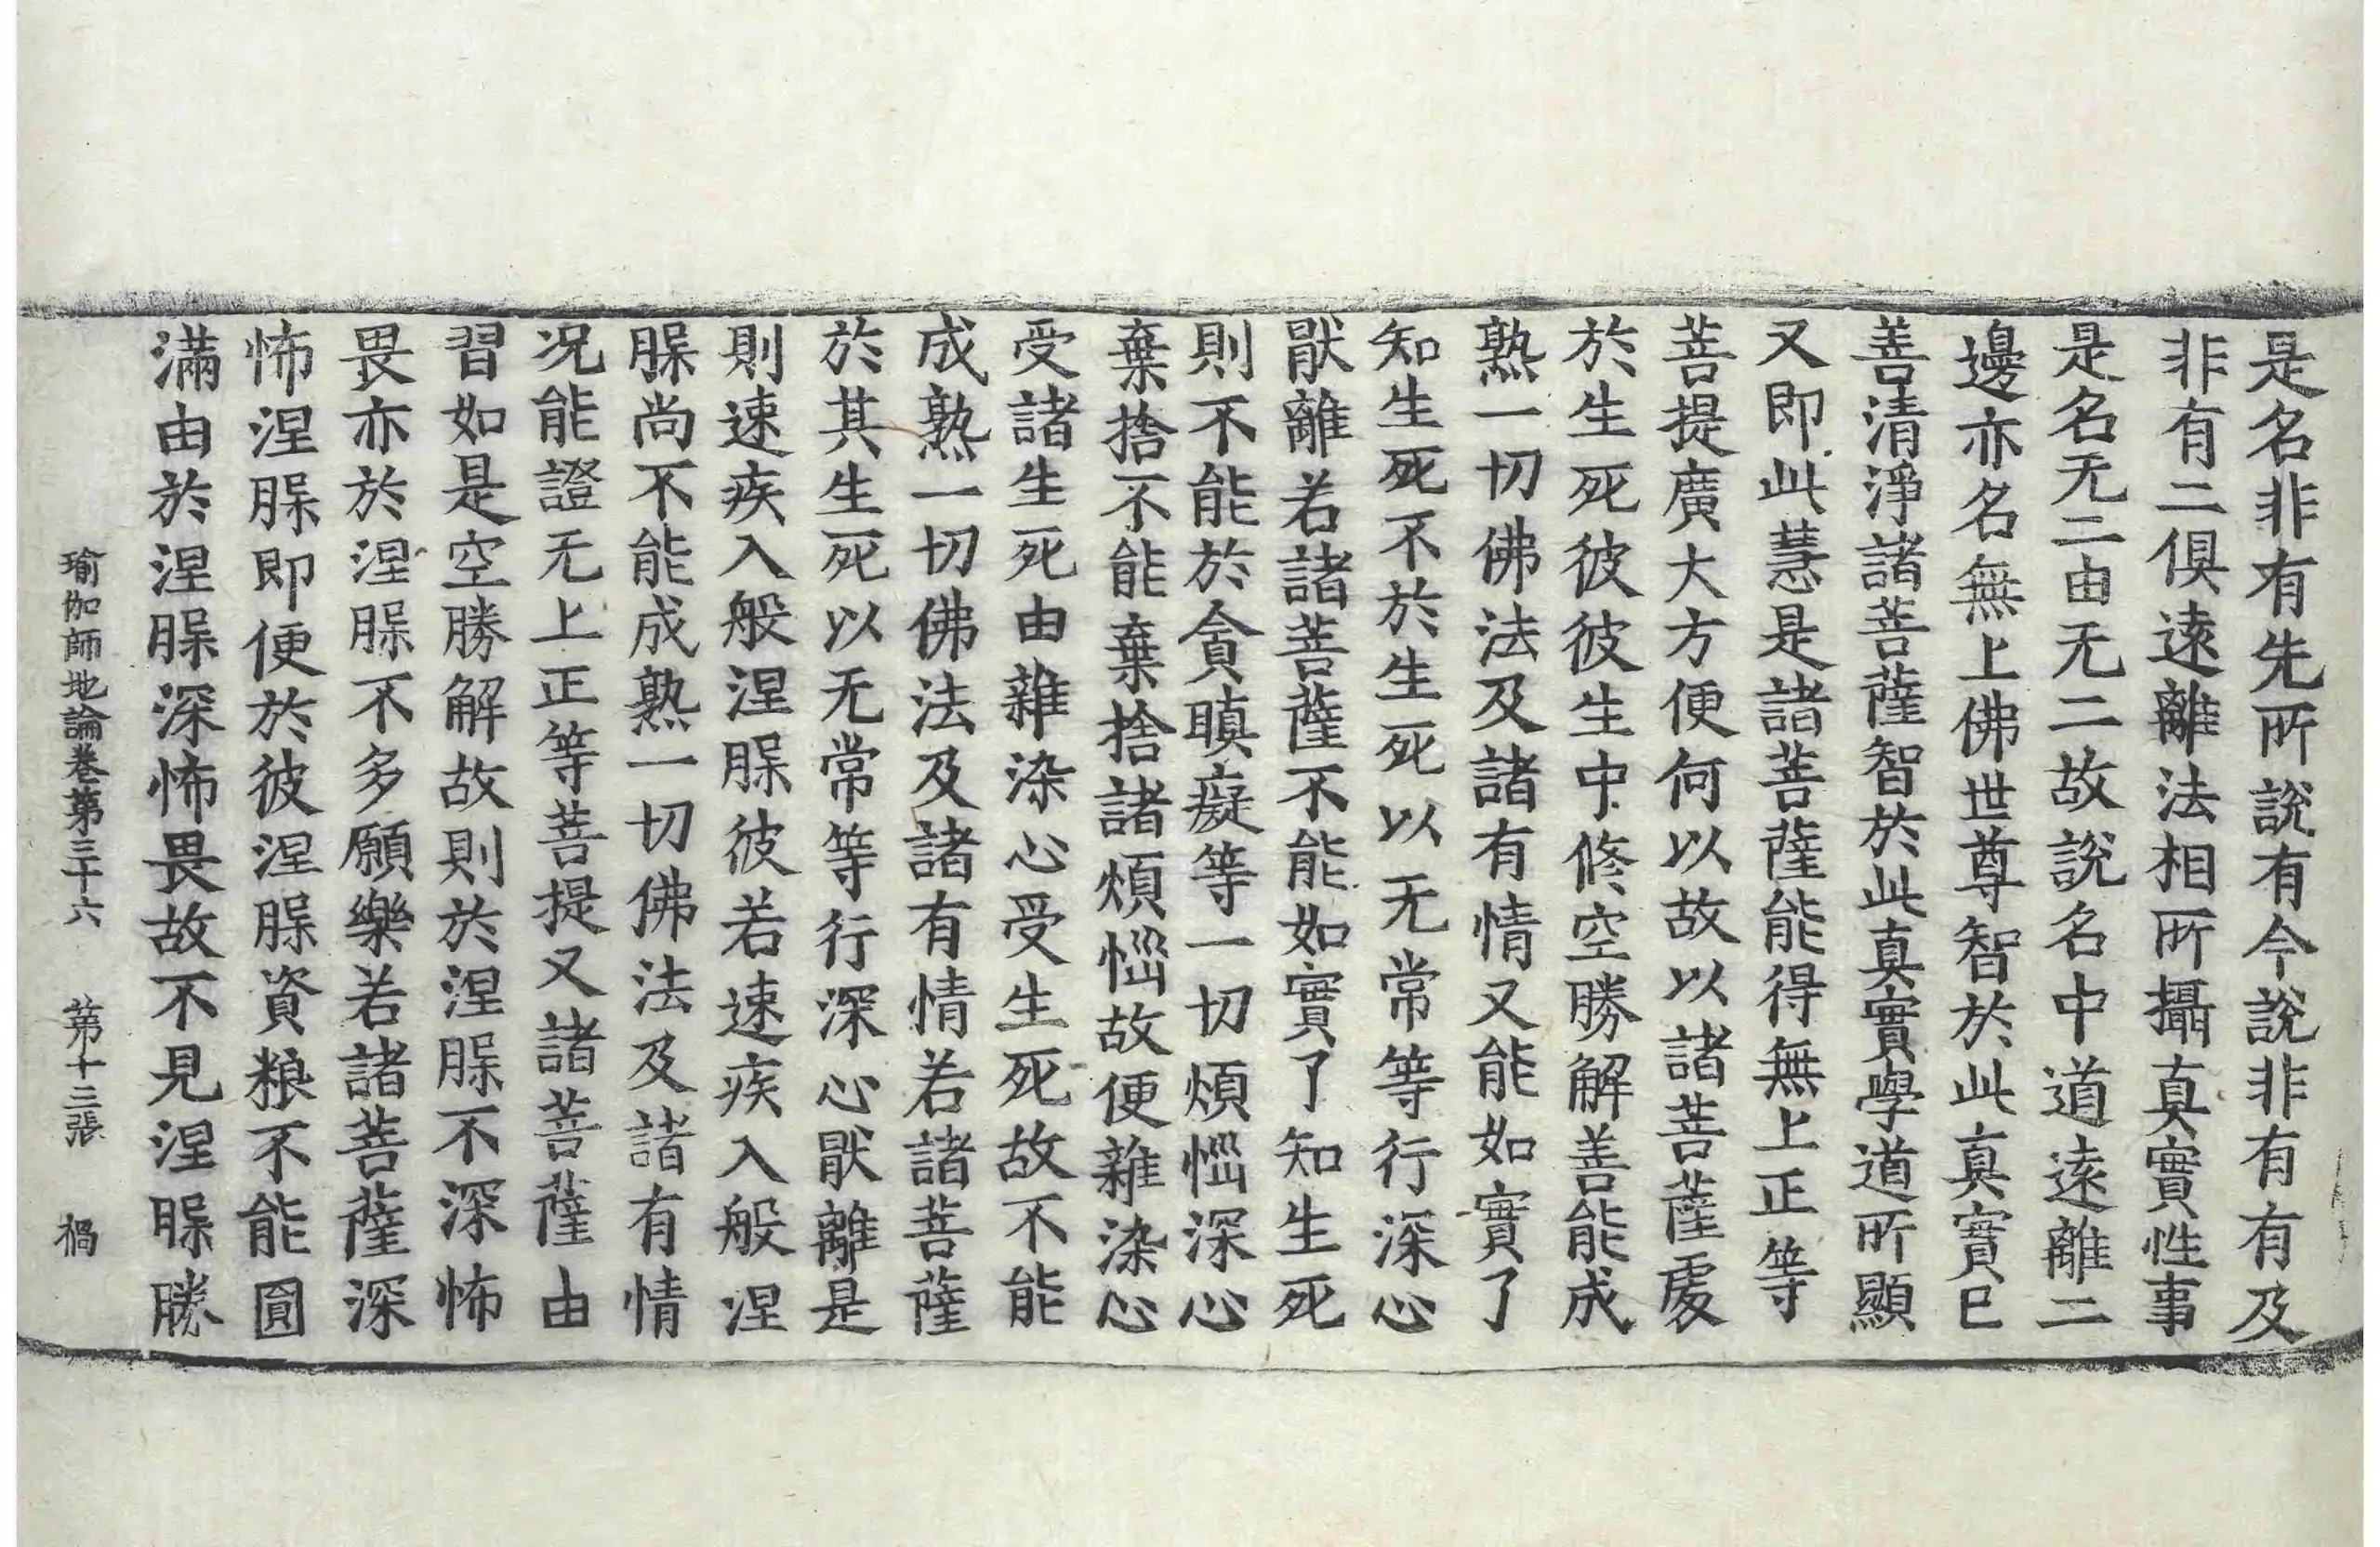 是名非有先所說有今說非有有及
非有二俱遠離法相所攝真實性事
是名无二由无二故說名中道遠離二
邊亦名無上佛世尊智於此真實已
善清淨諸菩薩智於此真實學道所顯
又即此慧是諸菩薩能得無上正等
菩提廣大方便何以故以諸菩薩處
於生死彼彼生中修空勝解善能成
熟一切佛法及諸有情又能如實了
知生死不於生死以无常等行深心
猒離若諸菩薩不能如實了知生死
則不能於貪瞋癡等一切煩惱深心
棄捨不能棄捨諸煩惱故便雜染心
受諸生死由雜染心受生死故不能
成熟一切佛法及諸有情若諸菩薩
於其生死以无常等行深心猒離是
則速疾入般涅脲彼若速疾入般涅
脲尚不能成熟一切佛法及諸有情
况能證无上正等菩提又諸菩薩由
習如是空勝解故則於涅脲不深怖
畏亦於涅脲不多願樂若諸菩薩深
怖涅脲即便於彼涅脲資粮不能圓
滿由於涅脲深怖畏故不見涅脲勝
瑜伽師地論卷第三十六 第十三張 禍